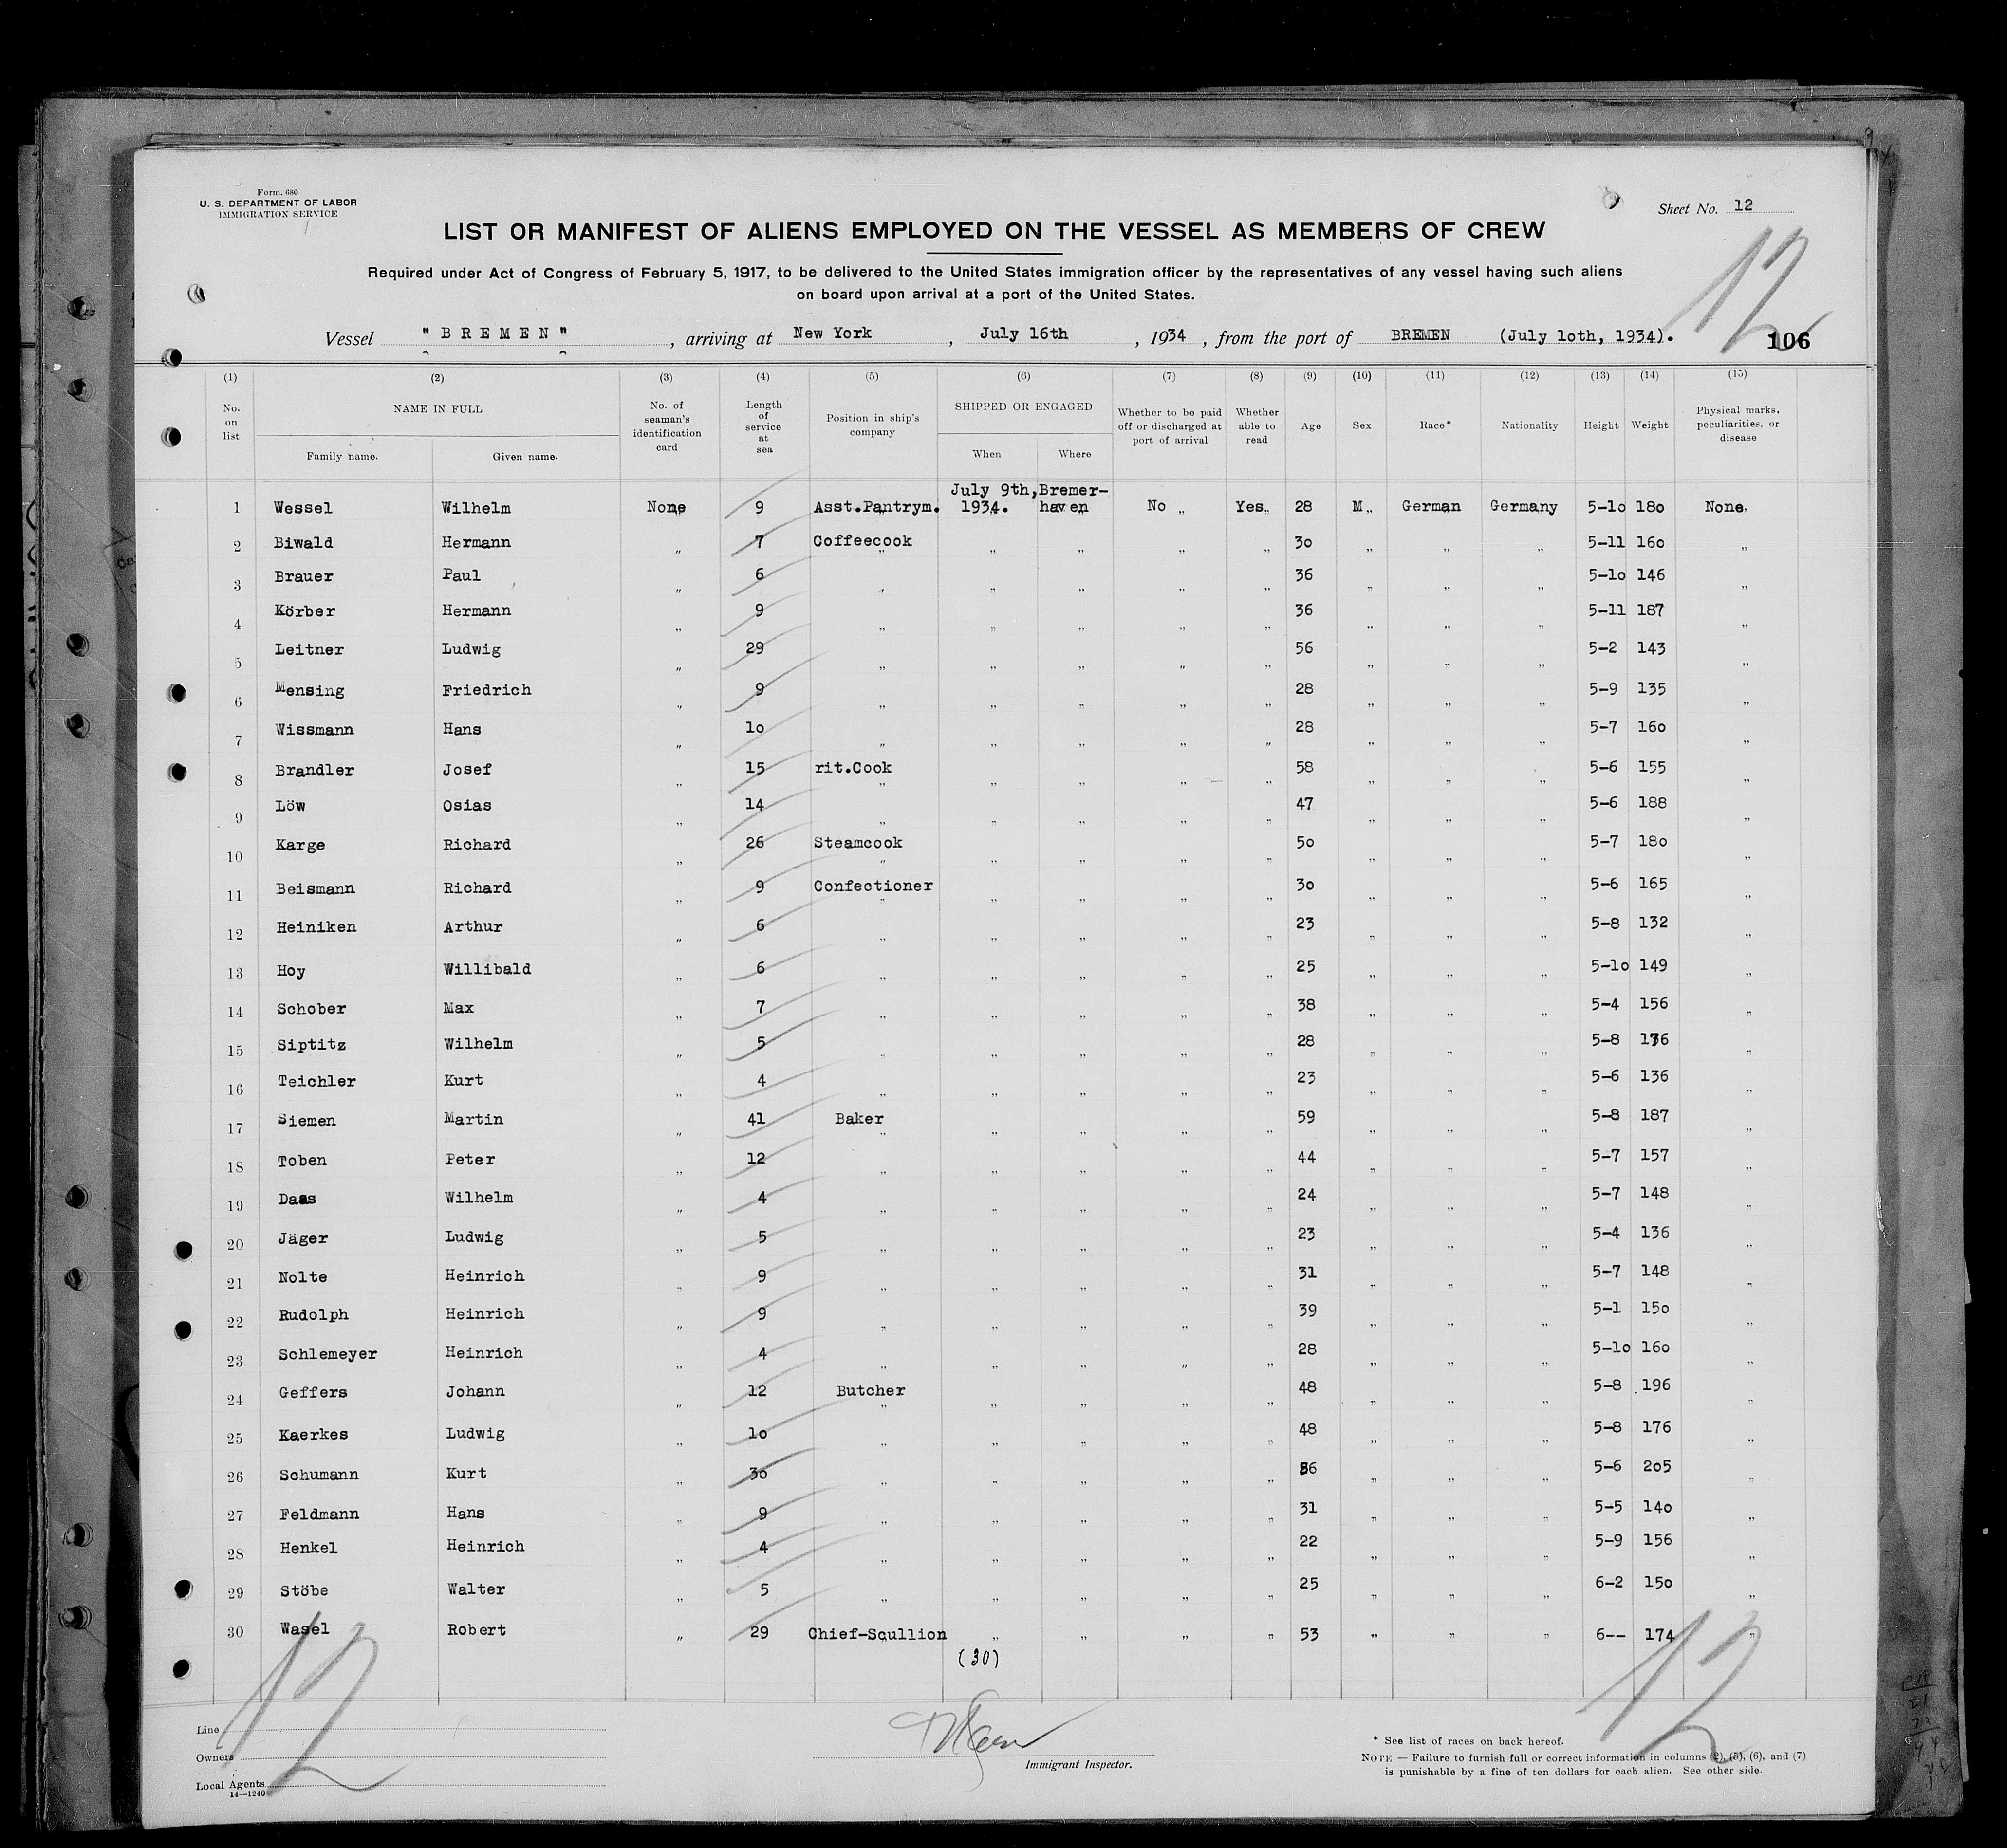 Form. 680
U. S. DEPARTMENT OF LABOR
IMMIGRATION SERVICE
Sheet No. 12
12
LIST OR MANIFEST OF ALIENS EMPLOYED ON THE VESSEL AS MEMBERS OF CREW
Required under Act of Congress of February 5, 1917, to be delivered to the United States immigration officer by the representatives of any vessel having such aliens
on board upon arrival at a port of the United States.
Vessel "BREMEN", arriving at New York, July 16th, 1934, from the port of BREMEN (July loth, 1934).
106
(1) (2) (3) (4) (5) (6) (7) (8) (9) (10) (11) (12) (13) (14) (15)
No. on list NAME IN FULL Family name. Given name. No. of seaman's identification card Length of service at sea Position in ship's company SHIPPED OR ENGAGED When Where Whether to be paid off or discharged at port of arrival Whether able to read Age Sex Race* Nationality Height Weight Physical marks, peculiarities, or disease
1 Wessel Wilhelm None 9 Asst.Pantrym. July 9th, 1934. Bremer-haven No „ Yes„ 28 M„ German Germany 5-lo 18o None.
2 Biwald Hermann „ 7 Coffeecook „ „ „ „ 3o „ „ „ 5-11 16o „
3 Brauer Paul „ 6 „ „ „ „ „ 36 „ „ „ 5-lo 146 „
4 Körber Hermann „ 9 „ „ „ „ „ 36 „ „ „ 5-11 187 „
5 Leitner Ludwig „ 29 „ „ „ „ „ 56 „ „ „ 5-2 143 „
6 Mensing Friedrich „ 9 „ „ „ „ „ 28 „ „ „ 5-9 135 „
7 Wissmann Hans „ lo „ „ „ „ „ 28 „ „ „ 5-7 16o „
8 Brandler Josef „ 15 rit.Cook „ „ „ „ 58 „ „ „ 5-6 155 „
9 Löw Osias „ 14 „ „ „ „ „ 47 „ „ „ 5-6 188 „
10 Karge Richard „ 26 Steamcook „ „ „ „ 5o „ „ „ 5-7 18o „
11 Beismann Richard „ 9 Confectioner „ „ „ „ 3o „ „ „ 5-6 165 „
12 Heiniken Arthur „ 6 „ „ „ „ „ 23 „ „ „ 5-8 132 „
13 Hoy Willibald „ 6 „ „ „ „ „ 25 „ „ „ 5-lo 149 „
14 Schober Max „ 7 „ „ „ „ „ 38 „ „ „ 5-4 156 „
15 Siptitz Wilhelm „ 5 „ „ „ „ „ 28 „ „ „ 5-8 „
16 Teichler Kurt „ 4 „ „ „ „ „ 23 „ „ „ 5-6 136 „
17 Siemen Martin „ 41 Baker „ „ „ „ 59 „ „ „ 5-8 187 „
18 Toben Peter „ 12 „ „ „ „ „ 44 „ „ „ 5-7 157 „
19 Daas Wilhelm „ 4 „ „ „ „ „ 24 „ „ „ 5-7 148 „
20 Jäger Ludwig „ 5 „ „ „ „ „ 23 „ „ „ 5-4 136 „
21 Nolte Heinrich „ 9 „ „ „ „ „ 31 „ „ „ 5-7 148 „
22 Rudolph Heinrich „ 9 „ „ „ „ „ 39 „ „ „ 5-1 15o „
23 Schlemeyer Heinrich „ 4 „ „ „ „ „ 28 „ „ „ 5-lo 16o „
24 Geffers Johann „ 12 Butcher „ „ „ „ 48 „ „ „ 5-8 196 „
25 Kaerkes Ludwig „ lo „ „ „ „ „ 48 „ „ „ 5-8 176 „
26 Schumann Kurt „ 3o „ „ „ „ „ „ „ „ 5-6 2o5 „
27 Feldmann Hans „ 9 „ „ „ „ „ 31 „ „ „ 5-5 14o „
28 Henkel Heinrich „ 4 „ „ „ „ „ 22 „ „ „ 5-9 156 „
29 Stöbe Walter „ 5 „ „ „ „ „ 25 „ „ „ 6-2 15o „
30 Wasel Robert „ 29 Chief-Scullion „ „ „ „ 53 „ „ „ 6-- 174 „
(30)
12
12
Line
Owners
Local Agents
14—1240
Immigrant Inspector.
* See list of races on back hereof.
NOTE — Failure to furnish full or correct information in columns (2), (5), (6), and (7)
is punishable by a fine of ten dollars for each alien. See other side.